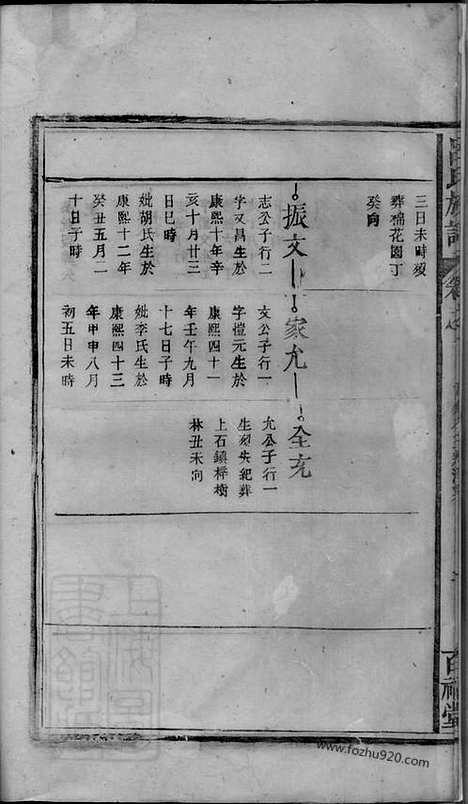 三日未時歿
葬棉花園丁
癸向
振文
志公子行二
字文昌生於
康熙十年辛
亥十月廿三
日巳時
妣胡氏生於
康熙十二年
癸丑五月二
十日子時
家允
文公子行一
字愷元生於
康熙四十一
年壬午九月
十七日子時
妣李氏生於
康熙四十三
年甲申八月
初五日未時
全充
允公子行一
生歿失紀葬
上石鎮梓樹
林丑未向
氏族譜
百福堂
上海圖
書館藏
www.fozhu920.com